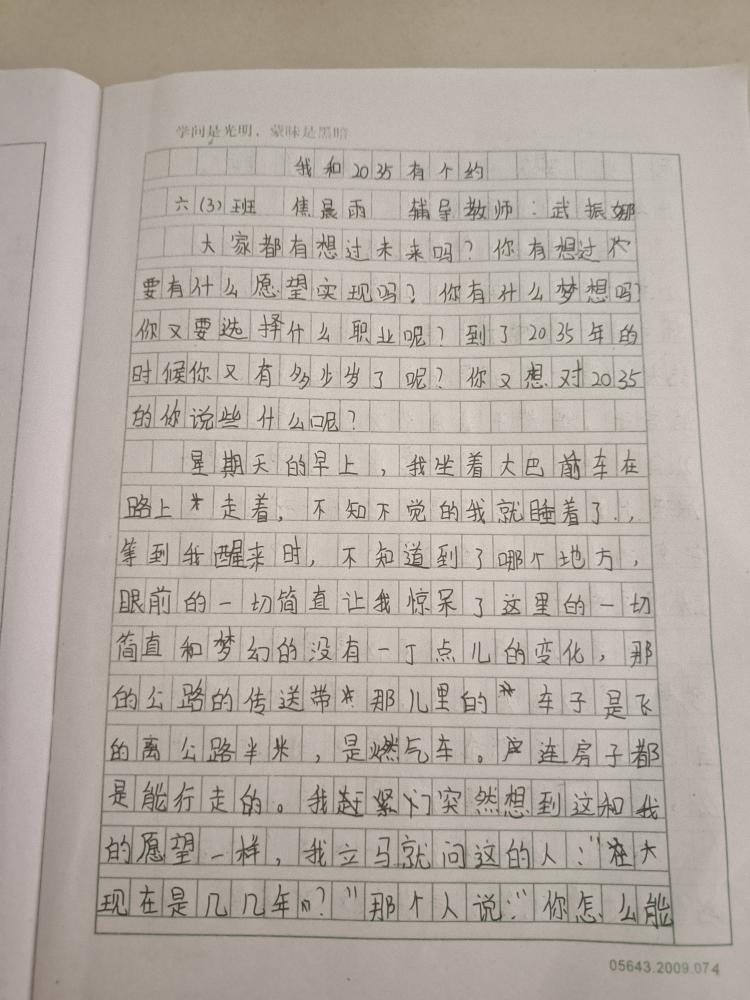 学问是光明，蒙昧是黑暗
我和2035有个约
六(3)班 焦晨雨 辅导教师：武振娜
大家都有想过未来吗？你有想过
要有什么愿望实现吗？你有什么梦想吗？
你又要选择什么职业呢？到了2035年的
时候你又有多少岁了呢？你又想对2035
的你说些什么呢？
星期天的早上，我坐着大巴前车在
路上走着，不知不觉的我就睡着了.，
等到我醒来时，不知道到了哪个地方，
眼前的一切简直让我惊呆了这里的一切
简直和梦幻的没有一丁点儿的变化，那
的公路的传送带那儿里的车子是飞
的离公路半米，是燃气车。连房子都
是能行走的。我赶紧突然想到这和我
的愿望一样，我立马就问这的人："在大
现在是几几年？"那个人说："你怎么能
05643.2009.074